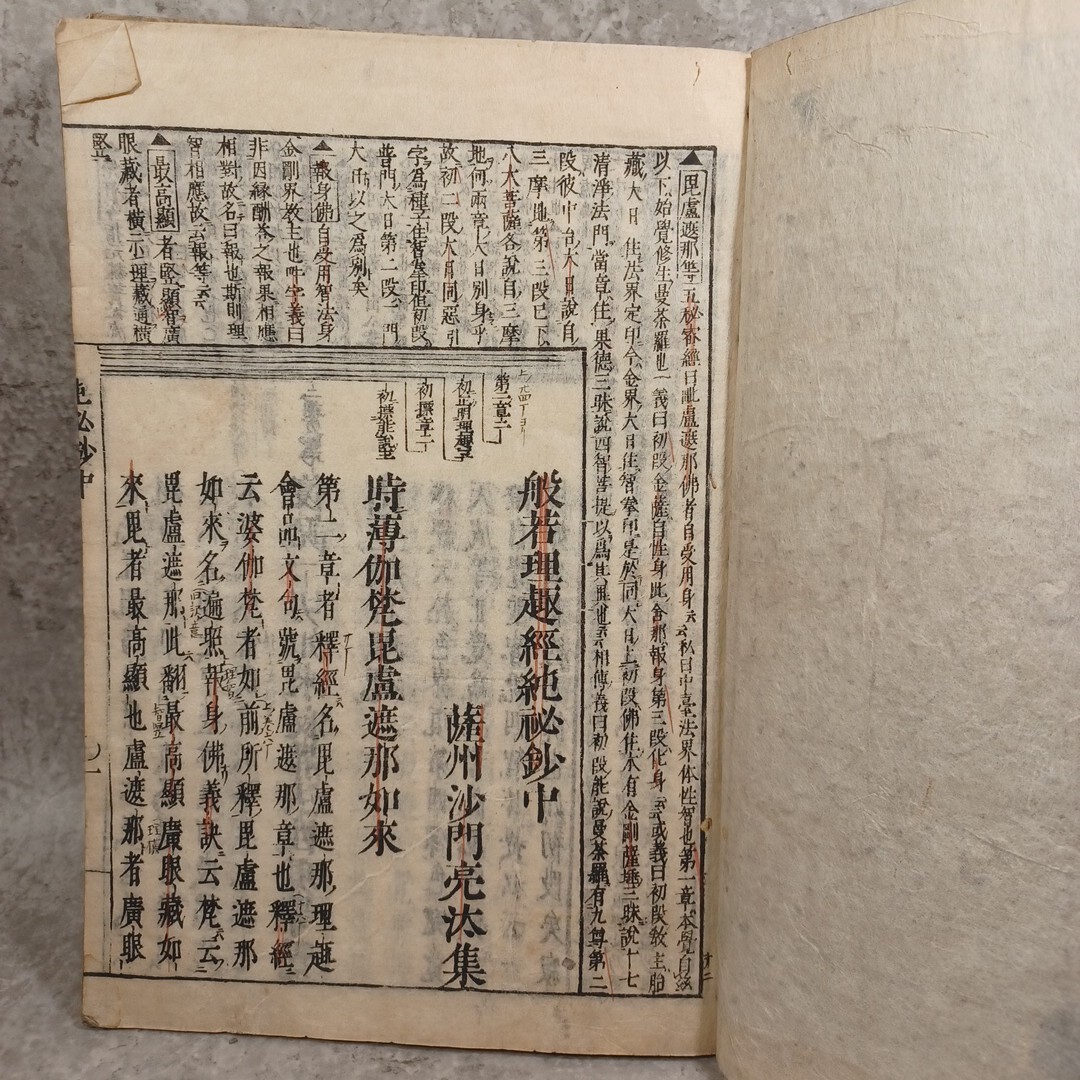 ▲毘盧遮那等五秘密經曰毗盧遮那佛者自受用身云云私曰中臺法界体性智也第一章本覺自證
以下始覺修生曼荼羅也一義曰初段金薩自性身此會那報身第三段化身云云或義曰初段教主胎
藏大日住法界定印今金界大日住智拳印是於同大日上初段佛住本有金剛薩埵三昧說十七
清淨法門當章住果德三昧說四智菩提以為其異也云云相傳義曰初段能說曼荼羅有九尊第二
段彼中台大日說自
三摩地第三段已下
八大菩薩各說自三摩
地何兩章大日別身乎
故初二段大日同惡引
字為種子住智拳印但初段
普門大日第二段一門
大日以之為別矣
▲報身佛自受用智法身
金剛界教主也吽字義曰
非因緣酬荅之報果相應
相對故名曰報也斯則理
智相應故云報等云云
▲最高顯者竪顯智廣
眼藏者橫示理藏通橫
竪
般若理趣經純祕鈔中
薩州沙門亮汰集
時薄伽梵毘盧遮那如來
第二章者釋經名毘盧遮那理趣
會品文句號毘盧遮那章也釋經
云婆伽梵者如前所釋毘盧遮那
如來名遍照報身佛義訣云梵云
毘盧遮那此翻最高顯廣眼藏如
來毘者最高顯也盧遮那者廣眼
第二章二
初正明理趣
初標章二
初標能說主